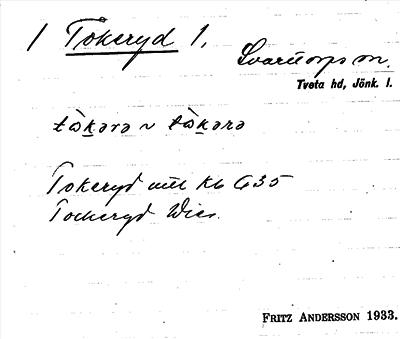 1 Tokeryd 1.
Svarttorps sn.
Tveta hd, Jönk. l.
tɷ̀kərə ~ tɷ̀kərə
Tokeryd
Tockeryd Wies.
FRITZ ANDERSSON 1933.